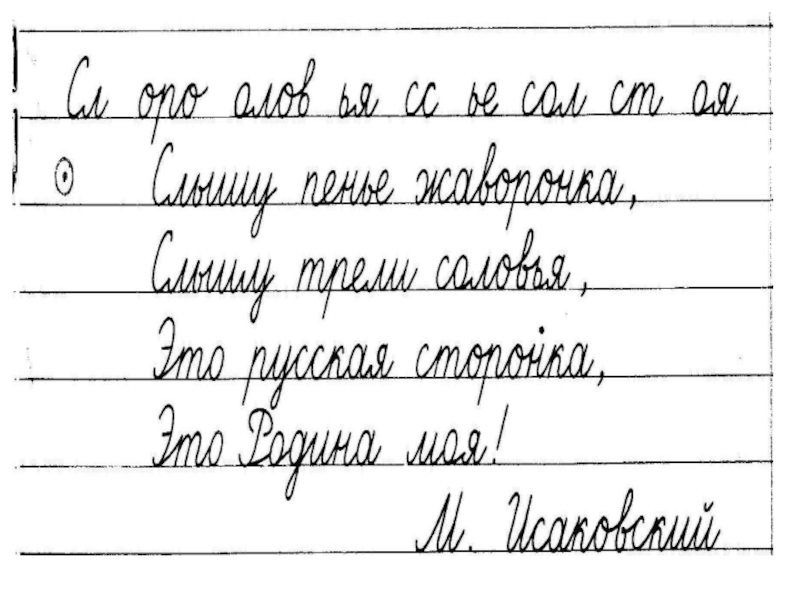 Сл оро олов ья сс ье сол ст оя
Слышу пенье жаворонка,
Слышу трели соловья,
Это русская сторонка,
Это Родина моя!
М. Исаковский